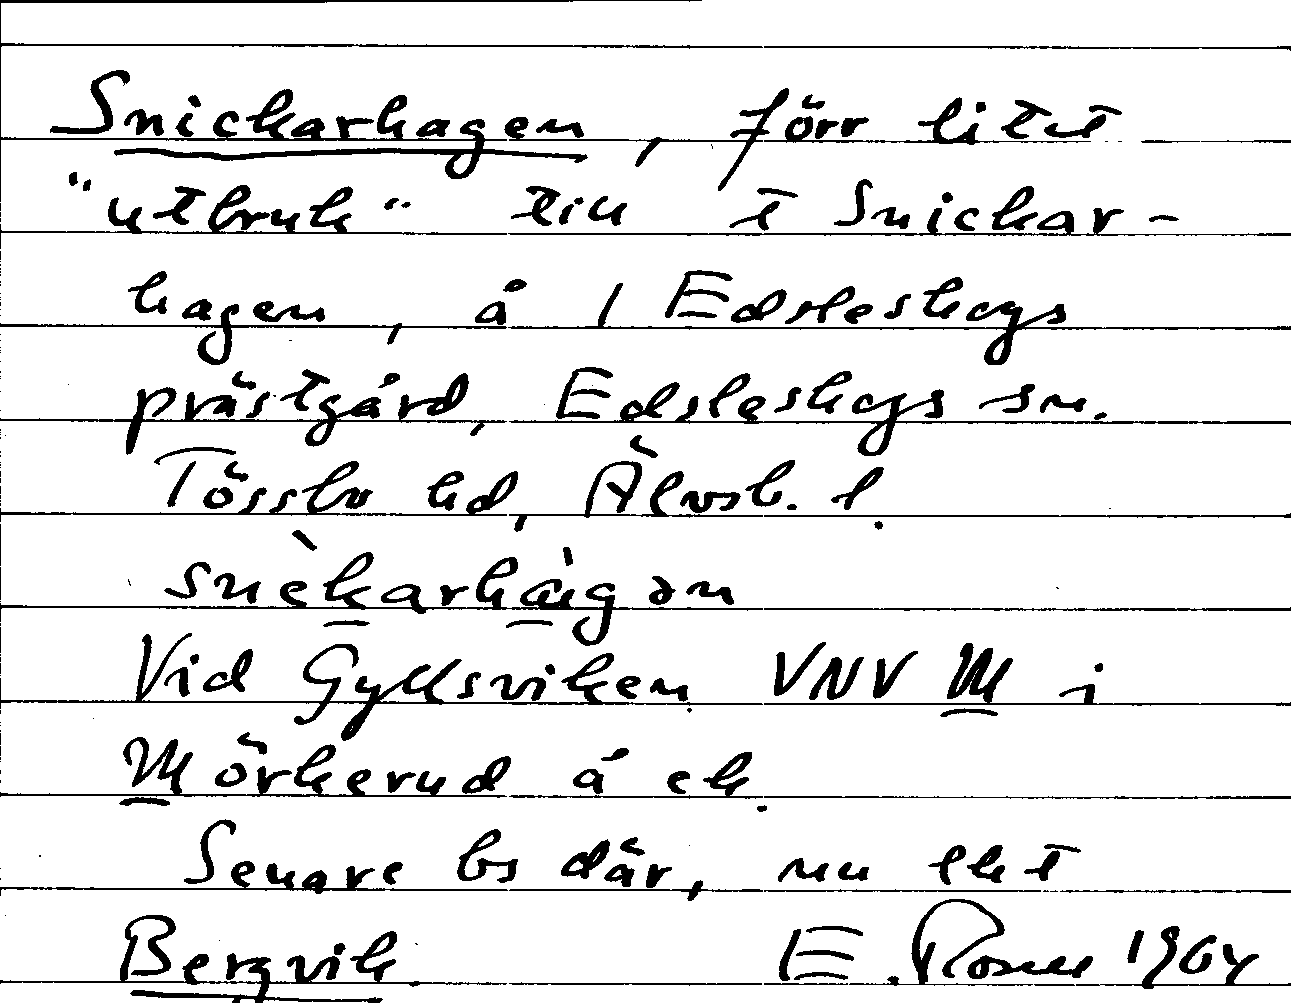 Snickarhagen, förr litet
"utbruk" till t Snickar-
hagen, å 1 Edsleskogs
prästgård, Edsleskogs sn.
Tössbo hd, Älvsb. l.
snèkarhàgən
Vid Gyllsviken VNV M i
Mörkerud å ek.
Senare bs där, nu lht
Bergvik. E. Rosell 1964